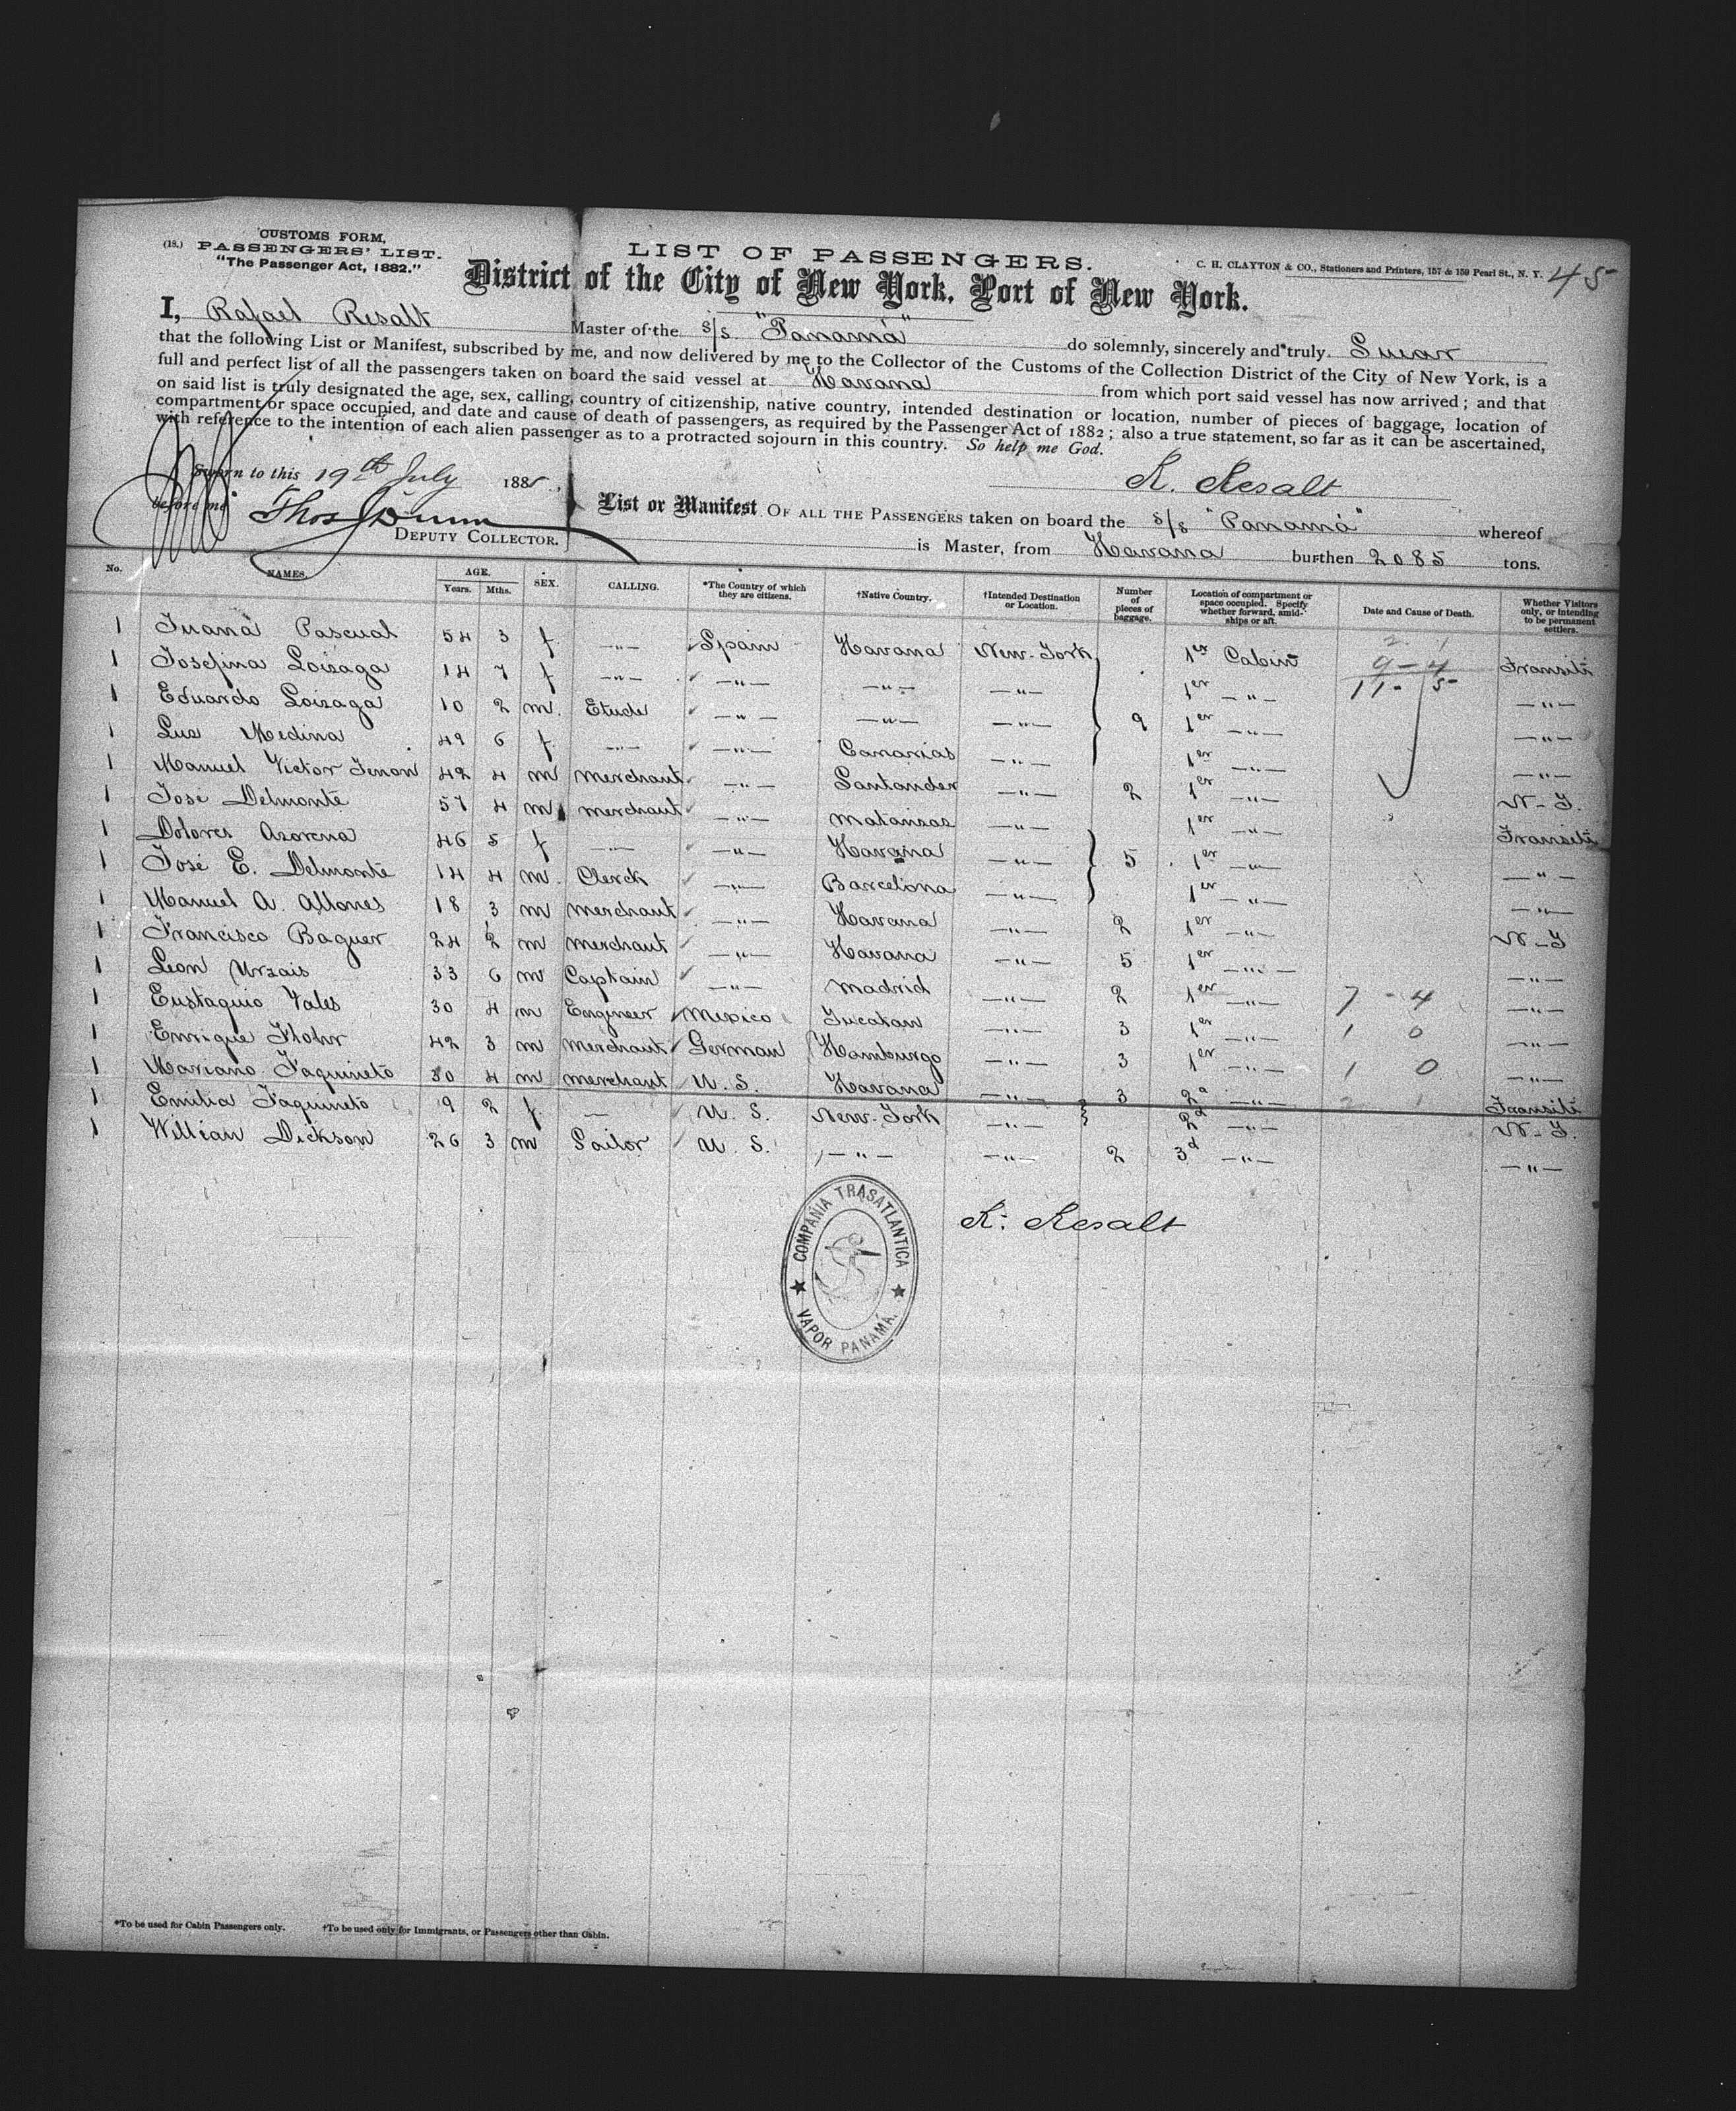 CUSTOMS FORM,
(18.) PASSENGERS' LIST.
"The Passenger Act, 1882."
LIST OF PASSENGERS.
C. H. CLAYTON & CO., Stationers and Printers, 157 & 159 Pearl St., N. Y. 45
District of the City of New York, Port of New York.
I, Rafael Resalt Master of the S/S. "Panamá" do solemnly, sincerely and truly, Swear
that the following List or Manifest, subscribed by me, and now delivered by me to the Collector of the Customs of the Collection District of the City of New York, is a
full and perfect list of all the passengers taken on board the said vessel at Havana from which port said vessel has now arrived; and that
on said list is truly designated the age, sex, calling, country of citizenship, native country, intended destination or location, number of pieces of baggage, location of
compartment or space occupied, and date and cause of death of passengers, as required by the Passenger Act of 1882; also a true statement, so far as it can be ascertained,
with reference to the intention of each alien passenger as to a protracted sojourn in this country. So help me God.
Sworn to this 19th July 188
R. Resalt
before me Thos Dunn
DEPUTY COLLECTOR.
List or Manifest OF ALL THE PASSENGERS taken on board the S/S "Panamá" whereof
is Master, from Havana burthen 2085 tons.
No. NAMES. AGE. Years. Mths. SEX. CALLING. *The Country of which they are citizens. †Native Country. †Intended Destination or Location. Number of pieces of baggage. Location of compartment or space occupied. Specify whether forward, amidships or aft. Date and Cause of Death. Whether Visitors only, or intending to be permanent settlers.
1 Juana Pascual 54 3 f —"— Spain Havana New-York 1er Cabin 2 1 Transiti
1 Josefina Loizaga 14 7 f —"— —"— —"— —"— 1er —"— 9-4 —"—
1 Eduardo Loizaga 10 2 m. Etude —"— —"— —"— 9 1er —"— 11-5 —"—
1 Lus Medina 49 6 f —"— —"— Canarias —"— 1er —"— —"—
1 Manuel Victor 42 4 m merchant —"— Santander —"— 2 1er —"— N-Y.
1 José Delmonte 57 4 m merchant —"— Matanzas —"— 1er —"— Transiti
1 Dolores Azorena 46 5 f —"— —"— Havana —"— 5 1er —"— —"—
1 José E. Delmonte 14 4 m. Clerck —"— Barcelona —"— 1er —"— —"—
1 Manuel A. Allones 18 3 m merchant —"— Havana —"— 2 1er —"— N-Y
1 Francisco Baguer 24 2 m merchant —"— Havana —"— 5 1er —"— —"—
1 Leon Urzais 33 6 m Captain —"— Madrid —"— 2 1er —"— 7-4 —"—
1 Eustaquio Vales 30 4 m Engineer Mexico Yucatan —"— 3 1er —"— 1 0 —"—
1 Enrique 42 3 m merchant German Hamburgo —"— 3 1er —"— 1 0 —"—
1 Mariano Faquineto 30 4 m merchant U. S. Havana —"— 3 2a —"— 2 1 Transiti
1 Emilia Faquineto 9 2 f — U. S. New-York —"— 2a —"— N-Y.
1 Willian Dickson 26 3 m Sailor U. S. —"— —"— 2 3d —"— —"—
R. Resalt
COMPAÑIA TRASATLANTICA
★ VAPOR PANAMÁ. ★
*To be used for Cabin Passengers only. †To be used only for Immigrants, or Passengers other than Cabin.